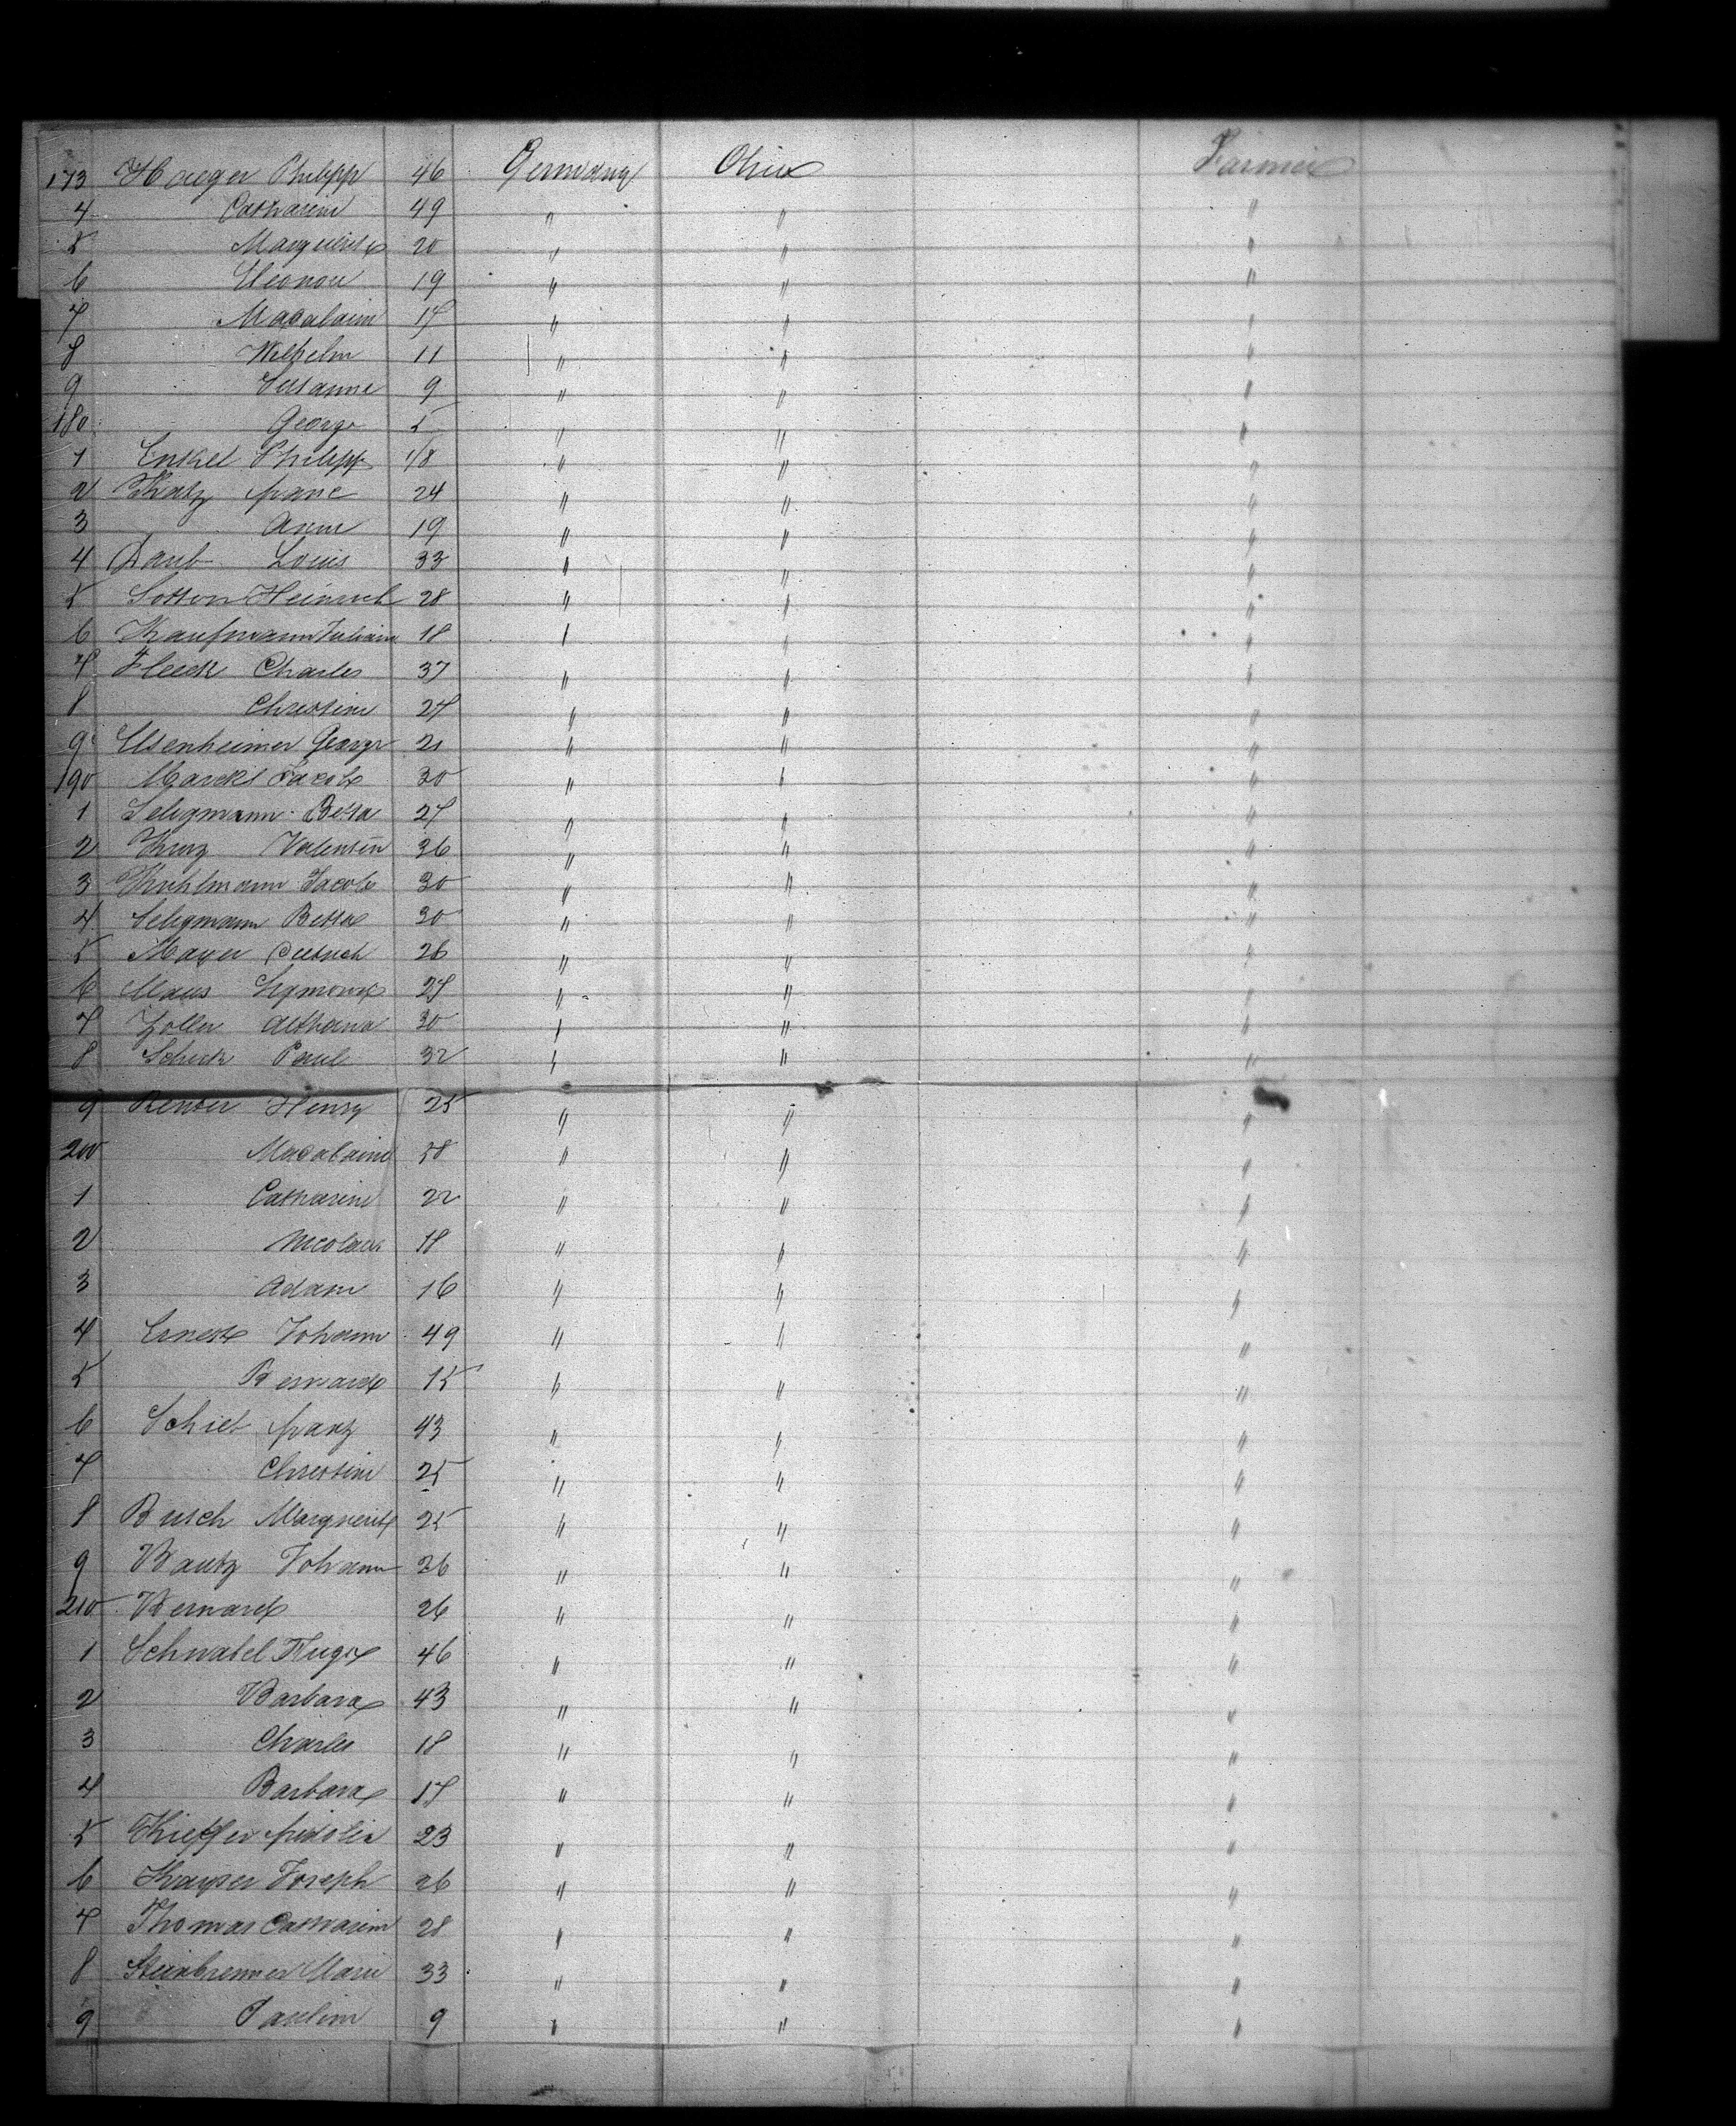 173 Haeger Philipp 46 Germany Ohio Farmer
4 Catharine 49 " " "
5 Marguerite 20 " " "
6 Eleonore 19 " " "
7 Madalaine 17 " " "
8 Wilhelm 11 " " "
9 Susanne 9 " " "
180 George 5 " " "
1 Enkel Philipp 1/8 " " "
2 Katz franc 24 " " "
3 Anne 19 " " "
4 Daub Louis 33 " " "
5 Heinrich 28 " " "
6 Kaufmann Juliane 18 " " "
7 Fleck Charles 37 " " "
8 Christine 27 " " "
9 Elsenheimer George 21 " " "
190 Marckt Jacob 30 " " "
1 Seligmann Betta 27 " " "
2 Kurz Valentin 36 " " "
3 Kuhlmann Jacob 30 " " "
4 Seligmann Betta 30 " " "
5 Mayer Dietrich 26 " " "
6 Maus Sigmond 27 " " "
7 Zoller 30 " " "
8 Schick Paul 32 " " "
9 Renter Henry 25 " " "
200 Madalaine 58 " " "
1 Catharine 22 " " "
2 Nicolaus 18 " " "
3 Adam 16 " " "
4 Ernest Johann 49 " " "
5 Bernard 15 " " "
6 Schieb franz 43 " " "
7 Christine 25 " " "
8 Busch Marguerite 25 " " "
9 Bautz Johann 26 " " "
210 Bernard 26 " " "
1 Schnabel 46 " " "
2 Barbara 43 " " "
3 Charles 18 " " "
4 Barbara 17 " " "
5 Kieffer fridolin 23 " " "
6 Kayser Joseph 26 " " "
7 Thomas Catharine 28 " " "
8 Steinbrenner Marie 33 " " "
9 Pauline 9 " " "